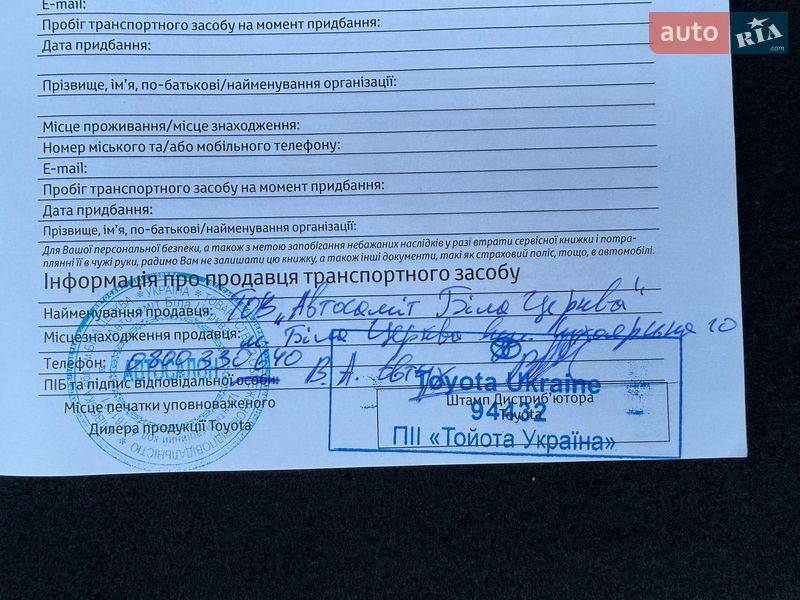 E-mail:
Пробіг транспортного засобу на момент придбання:
Дата придбання:
Прізвище, ім'я, по-батькові/найменування організації:
Місце проживання/місце знаходження:
Номер міського та/або мобільного телефону:
E-mail:
Пробіг транспортного засобу на момент придбання:
Дата придбання:
Прізвище, ім'я, по-батькові/найменування організації:
Для Вашої персональної безпеки, а також з метою запобігання небажаних наслідків у разі втрати сервісної книжки і потра-
плянні її в чужі руки, радимо Вам не залишати цю книжку, а також інші документи, такі як страховий поліс, тощо, в автомобілі.
Інформація про продавця транспортного засобу
Найменування продавця: ТОВ „Автосаміт Біла Церква"
Місцезнаходження продавця: м. Біла Церква
Телефон: 0800330040
ПІБ та підпис відповідальної особи: В. А.
Місце печатки уповноваженого
Дилера продукції Toyota
Toyota Ukraine
Штамп Дистриб'ютора
94432
Toyota
ПІІ «Тойота Україна»
auto RIA .com